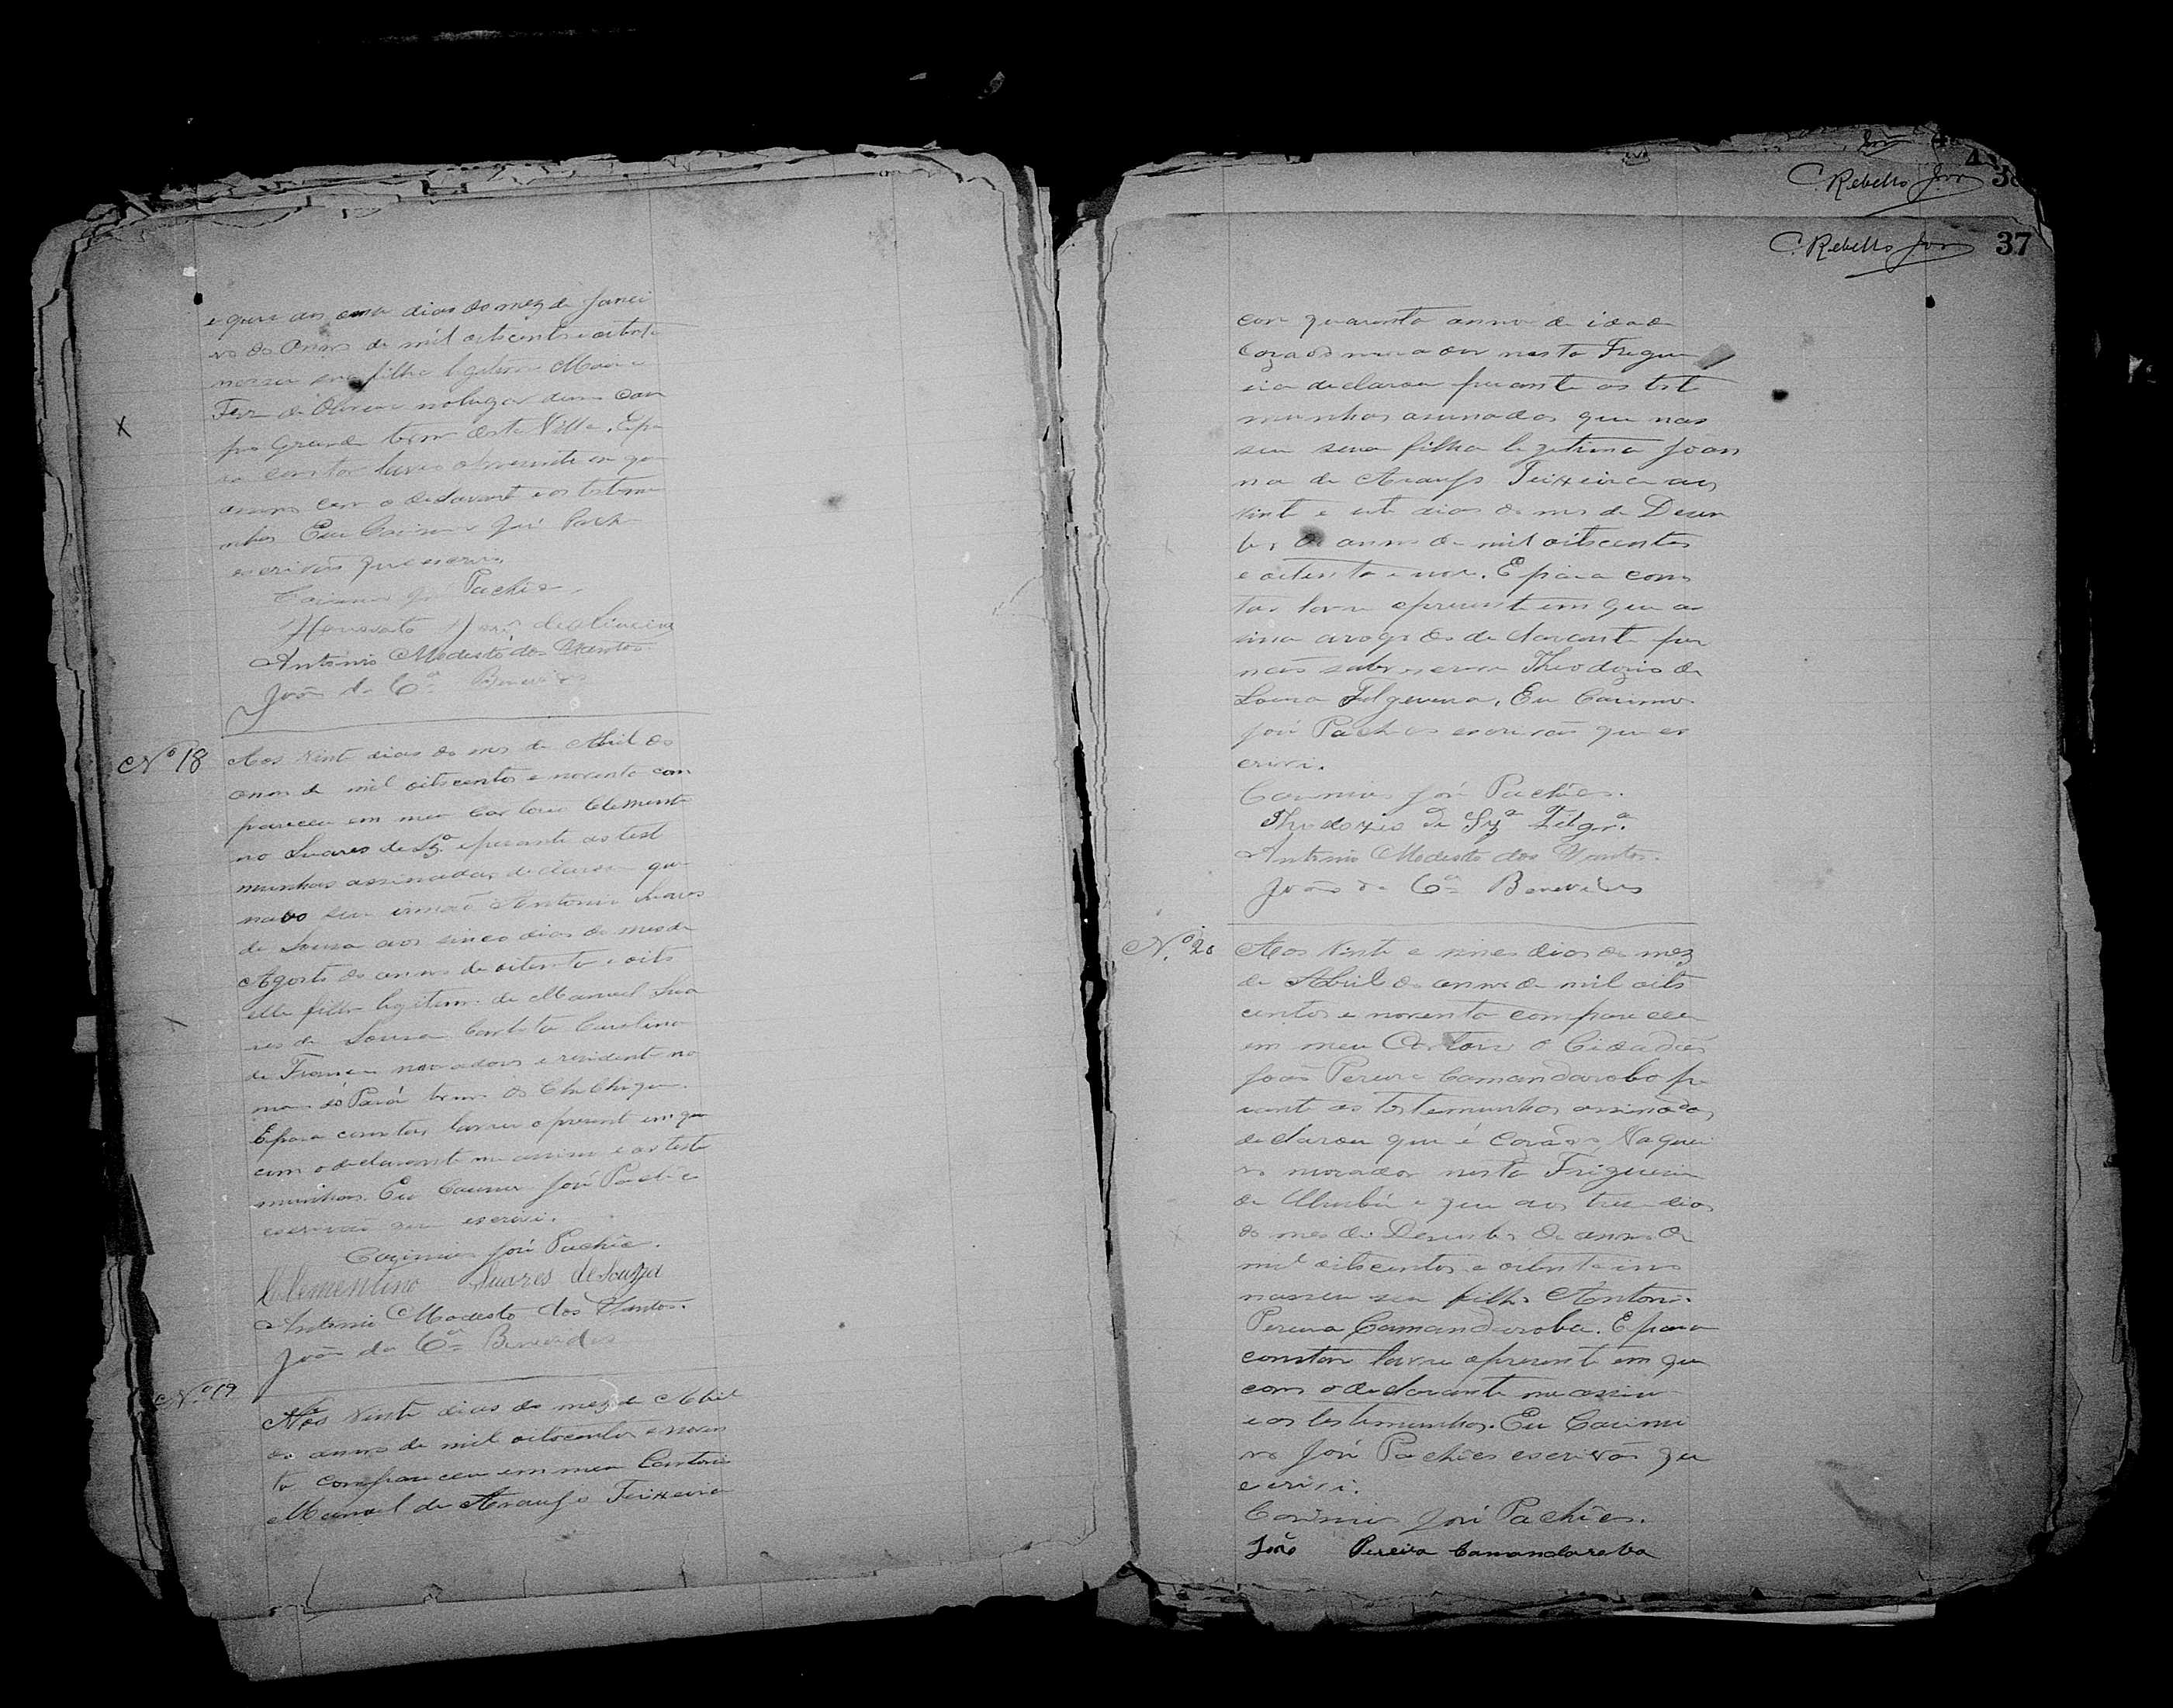 e que aos onze dias do mez de Janei
ro do Anno de mil oitocentos e oitenta
nasceu sua filha legitima Maria
de Oliveira no lugar Cam
po Grande termo desta Villa. E pa
ra constar lavro o presente em que
assino com o declarante e os testemu
nhas Eu José Pachêco
escrivão que escrevi.
José Pachêco
Honorato José de Oliveira
Antonio Modesto dos Santos
João da Cª Benevides
Nº 18
Aos vinte dias do mes de Abril do
anno de mil oitocentos e noventa com
pareceu em meu Cartorio Clementi
no Suares de Sza e perante as test
munhas assinadas declarou que
seu irmão Antonio Suares
de Sousa aos sinco dias do mes de
Agosto do anno de oitenta e oito
elle filho legitimo de Manuel Sua
res de Sousa Carlota Carolina
de França moradores e residente no
termo do
E para constar lavrei o presente em que
com o declarante me assino e as teste
munhas. Eu José Pachêco
escrivão que escrevi.
José Pachêco.
Clementino Suares de Souza
Antonio Modesto dos Santos.
João da Cª Benevides
Nº 19
Aos vinte dias do mez de Abril
do anno de mil oitocentos e noven
ta compareceu em meu Cartorio
Manuel de Araujo Teixeira
C. Rebello Jor 38
C. Rebello Jor 37
com quarenta annos de idade
morador nesta Fregue
sia declarou perante as teste
munhas assinadas que nas
seu sua filha legitima Joan
na de Araujo Teixeira aos
vinte e sete dias do mes de Desem
bro do anno de mil oitocentos
e oitenta e nove. E para cons
tar lavro o presente em que as
sina a rogo do declarante por
não saber escrever Theodozio de
Sousa Filgueira. Eu Casimiro
José Pachêco escrivão que es
crevi.
Casimiro José Pachêco.
Theodozio de Szª Filgrª
Antonio Modesto dos Santos.
João da Cª Benevides
Nº 20
Aos vinte e nove dias do mez
de Abril do anno de mil oito
centos e noventa compareceu
em meu Cartorio o Cidadão
João Pereira Camandaroba pe
rante as testemunhas assinadas
declarou que é Casado, Vaquei
ro morador nesta Freguesia
de Urubú e que aos treze dias
do mes de Desembro do anno de
mil oitocentos e oitenta e nove
nasceu seu filho Antonio
Pereira Camandaroba. E para
constar lavro o presente em que
com o declarante me assino
e os testemunhos. Eu Casimi
ro José Pachêco escrivão que
escrevi.
Casimiro José Pachêco.
João Pereira Camandaroba